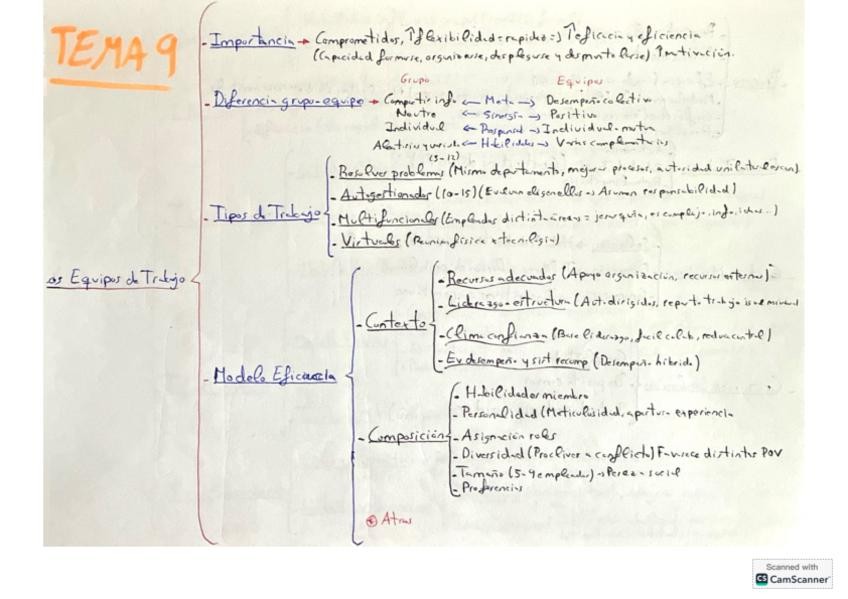 TEMA 9
- Importancia → Comprometidos, ↑flexibilidad = rapidez =) ↑eficacia y eficiencia
(Capacidad formarse, organizarse, desplegarse y desmantelarse) ↑motivación.
Grupo Equipos
- Diferencia grupo-equipo → Compartir info ← Meta → Desempeño colectivo
Neutro ← Sinergia → Positiva
Individual ← Responsab → Individual-mutua
← Habilidades → Varias complementarias
- Tipos de Trabajo
(5-12)
- Resolver problemas (Mismo departamento, mejorar procesos, autoridad unilateral
- Autogestionados (10-15) (Evalúan → Asumen responsabilidad)
- Multifuncionales (Empleados distintas áreas = jerarquía, es complejo, info, ideas...)
- Virtuales (Reunión física x tecnología)
os Equipos de Trabajo
- Modelo Eficacia
- Contexto
- Recursos adecuados (Apoyo organización, recursos externos)
- Liderazgo-estructura (Autodirigidos, reparto trabajo
- Clima confianza (Base liderazgo, facil colab, reduce control)
- Ev desempeño y sist recomp (Desempeño híbrido)
- Composición
- Habilidades miembro
- Personalidad (Meticulosidad, apertura experiencia
- Asignación roles
- Diversidad (Proclives a conflicto) Favorece distintos POV
- Tamaño (5-9 empleados) → Pereza social
- Preferencias
Atras
Scanned with
CS CamScanner